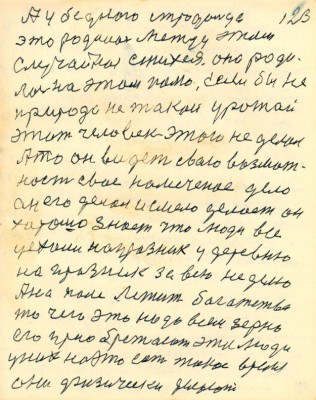 123
А у бедного стродонца
это родилось между этим
случайная стихея. оно роди-
лось на этом поле, если бы не
природа не такой урожай
этот человек этого не делал
А то он видет свою возмож-
ность свое намеченое дело
он его делал и смело делает он
хорошо знает что люди все
уехали на празник у деревню
на празник за всю неделю
А на поле лежит богатство
то чего это надо всем зерно
его приобретают эти люди
у них на это есть такое время
они физически